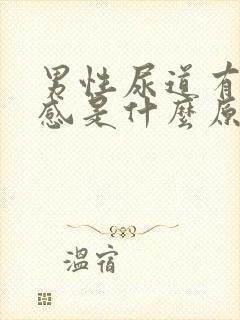 男性尿道有
感是什麼原
溫宿